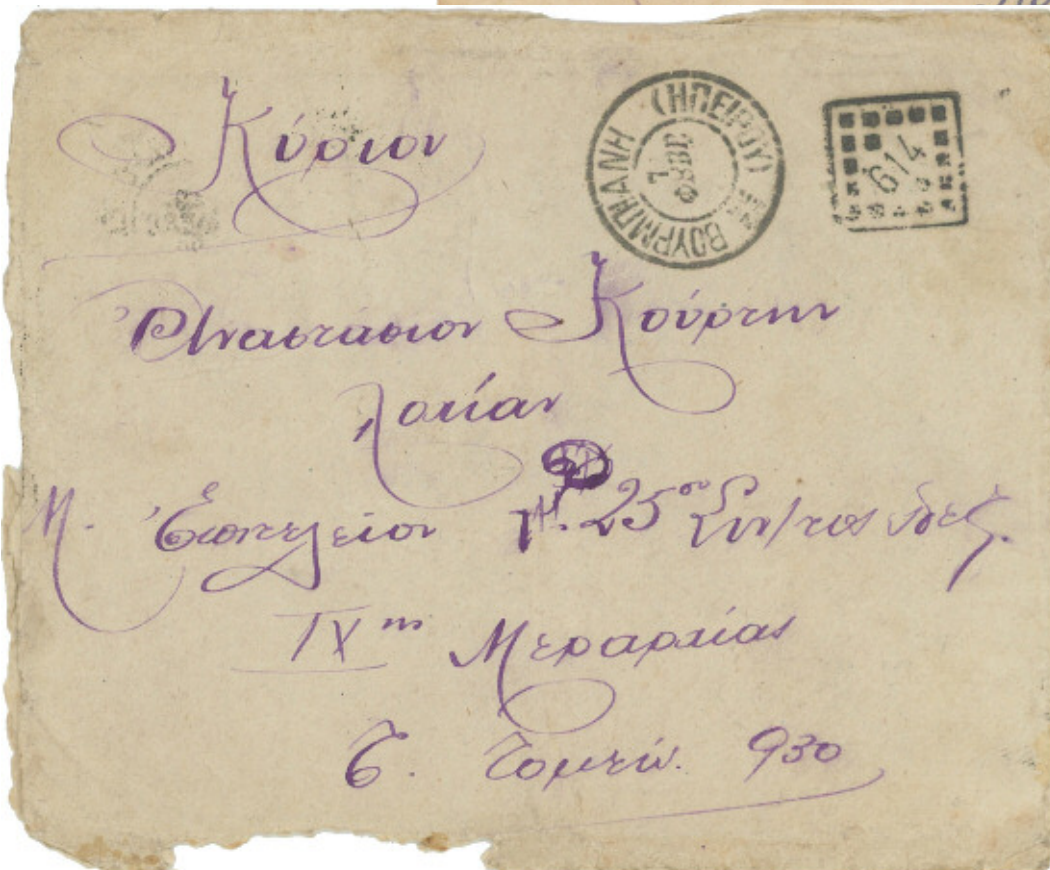 Κύριον
ΒΟΥΡΜΠΙΑΝΗ (ΗΠΕΙΡΟΥ)
7
ΦΕΒΡ
614
Ἀναστάσιον Κούρτην
λοχίαν
Μ. 25ου Συν/τος
IXης Μεραρχίας
Τ. Τομεύς. 930